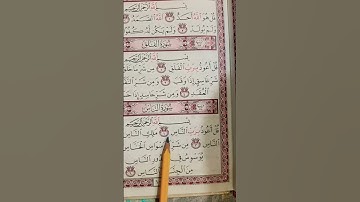 بِسْمِ اللَّهِ الرَّحْمَٰنِ الرَّحِيمِ
قُلْ هُوَ اللَّهُ أَحَدٌ اللَّهُ الصَّمَدُ
لَمْ يَلِدْ وَلَمْ يُولَدْ وَلَمْ يَكُن لَّهُ كُفُوًا
سُورَةُ الفَلَقِ
بِسْمِ اللَّهِ الرَّحْمَٰنِ الرَّحِيمِ
قُلْ أَعُوذُ بِرَبِّ الْفَلَقِ مِن شَرِّ مَا خَلَقَ
شَرِّ غَاسِقٍ إِذَا وَقَبَ وَمِن شَرِّ النَّفَّ
الْعُقَدِ وَمِن شَرِّ حَاسِدٍ إِذَا حَسَدَ
سُورَةُ النَّاسِ
بِسْمِ اللَّهِ الرَّحْمَٰنِ الرَّحِيمِ
قُلْ أَعُوذُ بِرَبِّ النَّاسِ مَلِكِ النَّاسِ
النَّاسِ مِن شَرِّ الْوَسْوَاسِ الْخَنَّاسِ
يُوَسْوِسُ فِي صُدُورِ النَّاسِ
مِنَ الْجِنَّةِ وَالنَّاسِ